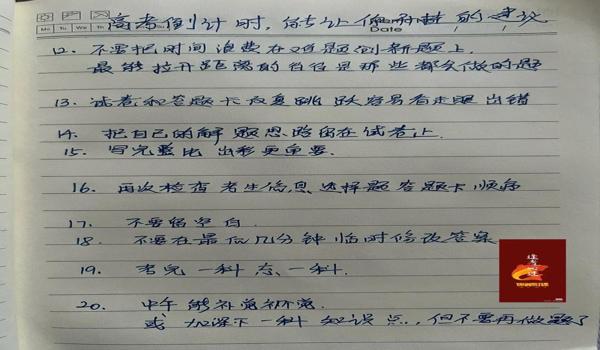 高考倒计时,能让你 的建议
Mo Tu We Th
Date
12. 不要把时间浪费在难题刷新题上
最能拉开距离的往往是那些都会做的题
13. 试卷和答题卡反复跳跃容易看走眼出错
14. 把自己的解题思路留在试卷上
15. 写完整比出彩更重要.
16. 再次检查考生信息 选择题答题卡顺序
17. 不要留空白
18. 不要在最低几分钟临时修改答案
19. 考完一科忘一科.
20. 中午能补觉补觉.
或加深下一科知识点.. 但不要再做题了